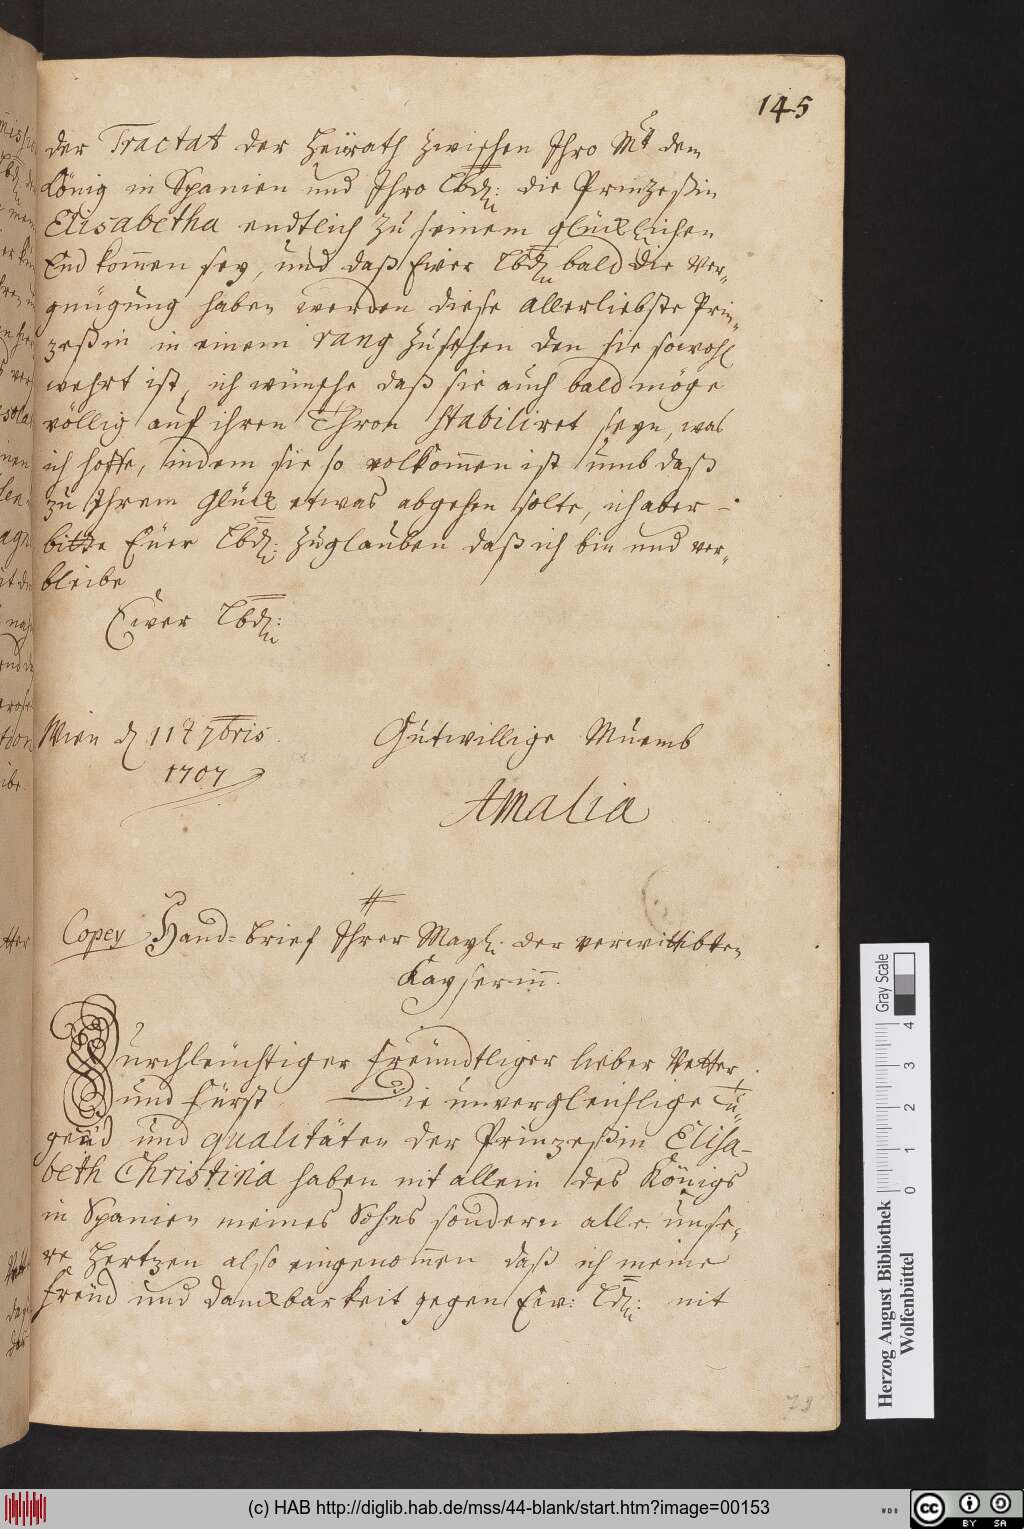 145
der Tractat der Heÿrath zwischen Ihro Mt dem
König in Spanien und Ihro Lbd: die Prinzeßin
Elisabetha endtlich zu seinem glücklichen
End kom̅en sey, und daß Ewer Lbd bald die Ver-
gnügung haben werden diese allerliebste Prin-
zeßin in einem rang zusehen den sie sowohl
wehrt ist, ich wünsche daß sie auch bald möge
völlig auf ihren Thron stabiliret seyn, was
ich hoffe, indem sie so volkom̅en ist umb daß
zu Ihrem Glück etwas abgehen solte, ich aber
bitte Euer Lbd: zuglauben daß ich bin und ver-
bleibe
Ewer Lbd:
Wien d 11t 7bris
1707
Gutwillige Muemb
Amalia
Copey Hand-brief Ihrer Mayt: der verwittibten
Kayserin̅.
Durchleuchtiger freundtliger lieber Vetter
und Fürst Die unvergleichlige Tu-
gend und qualitäten der Prinzeßin Elisa-
beth Christina haben nit allein des Königs
in Spanien meines Sohns sondern alle unse-
re Hertzen also eingenom̅en daß ich meine
freud und danckbarkeit gegen Ew: Ld: nit
79
Herzog August Bibliothek
Wolfenbüttel
Gray Scale
0 1 2 3 4
(c) HAB http://diglib.hab.de/mss/44-blank/start.htm?image=00153
cc BY SA